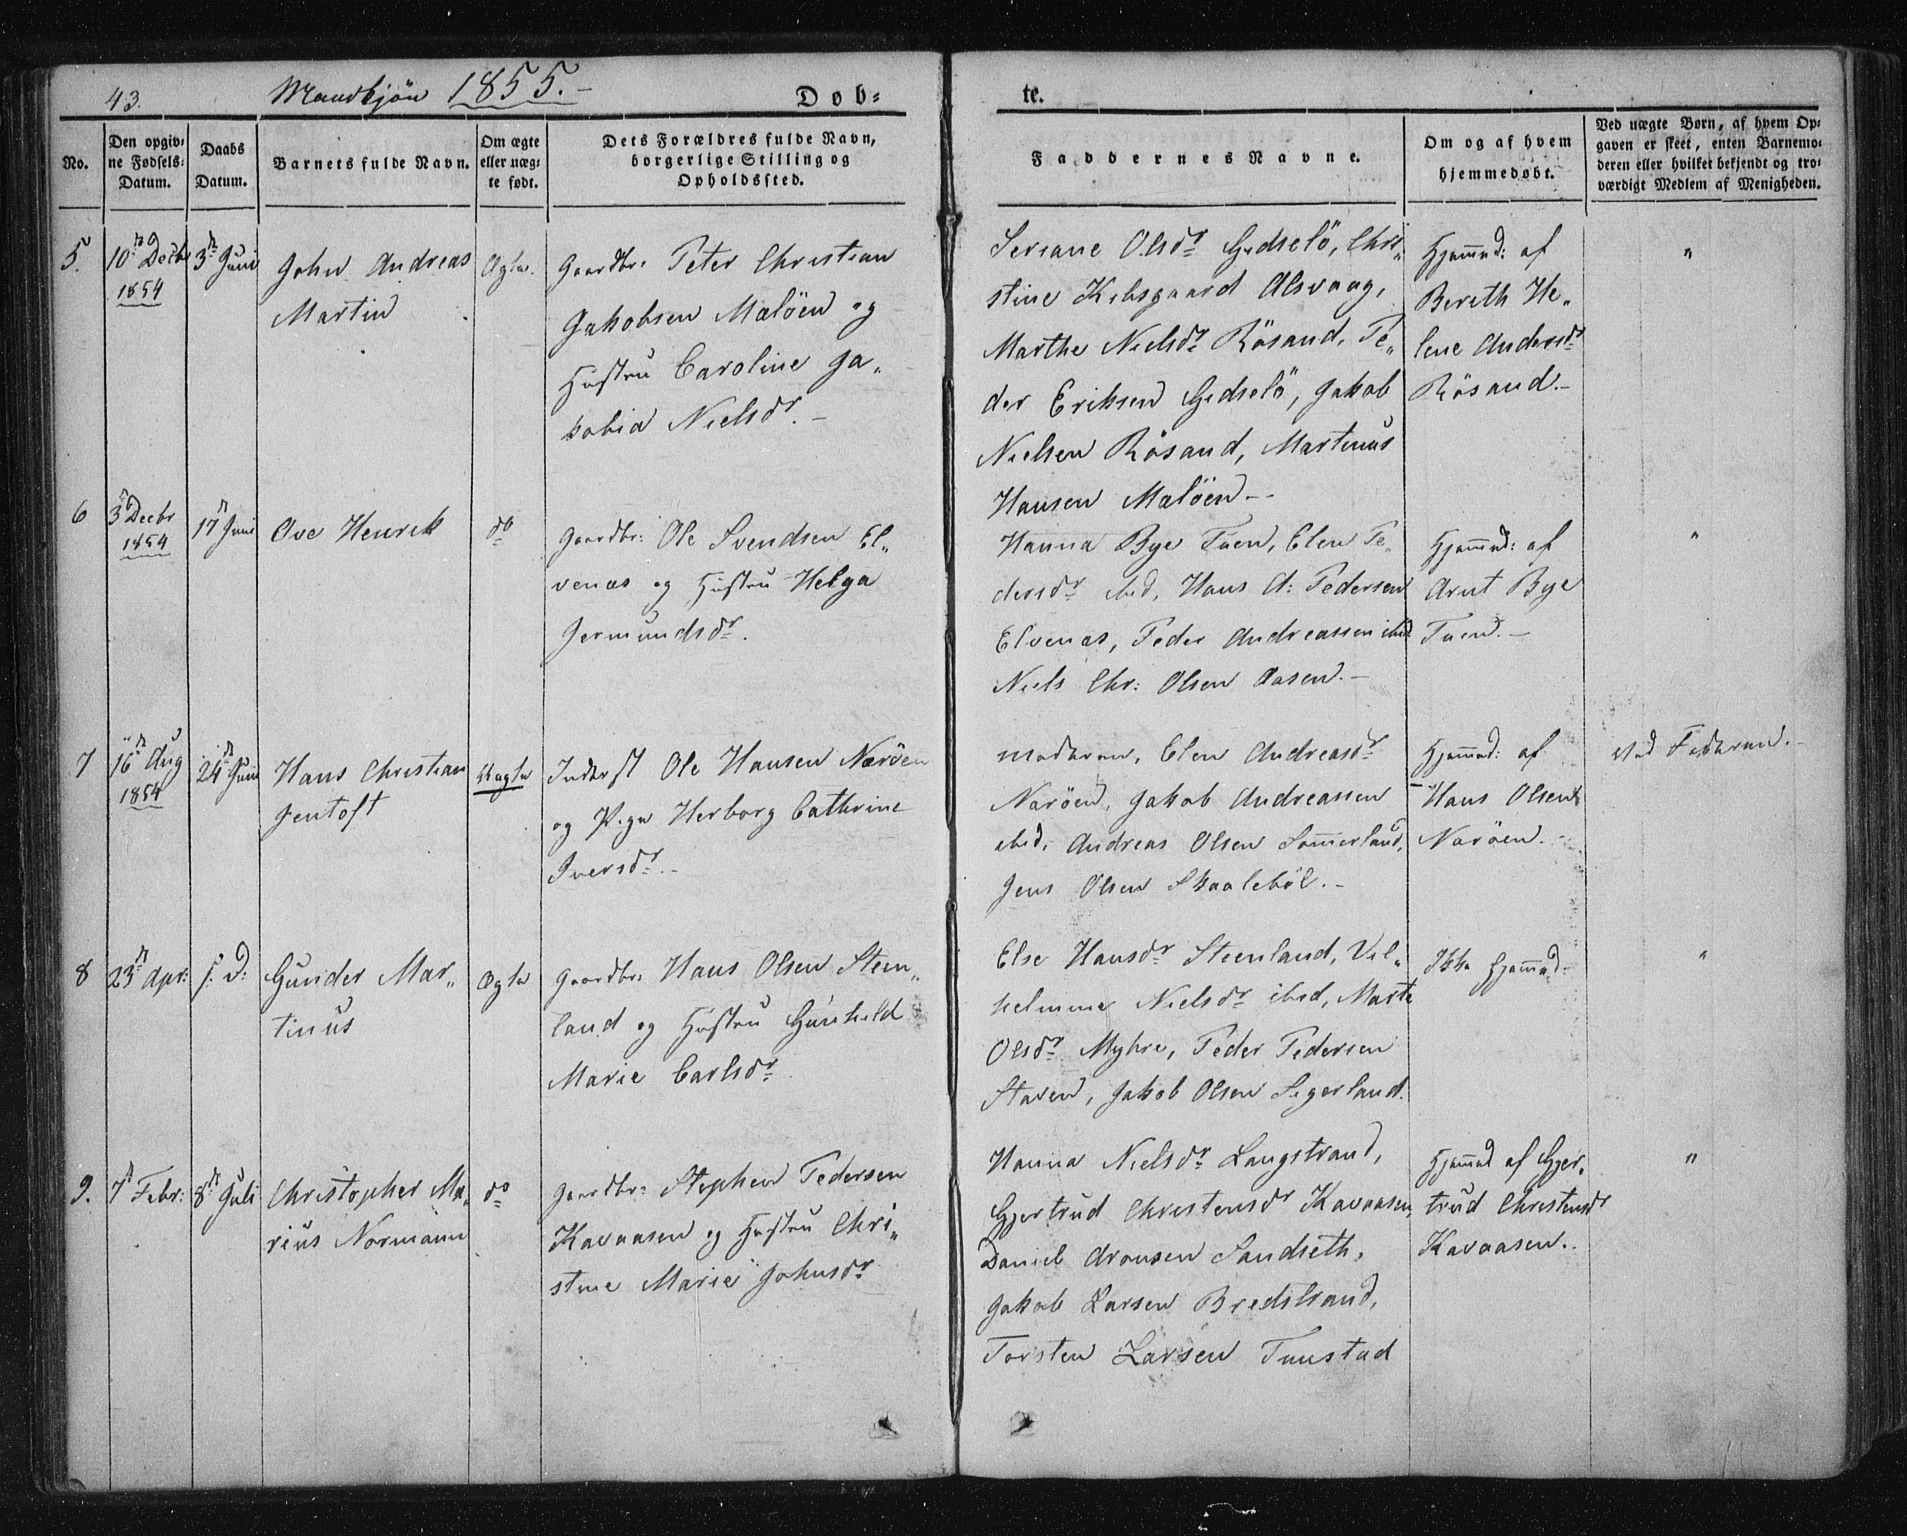 43. Mandkjøn 1855.-
Døb-
te.
No.
Den opgiv-
ne Fødsels-
Datum.
Daabs
Datum.
Barnets fulde Navn.
Om ægte
eller uæg-
te født.
Dets Forældres fulde Navn,
borgerlige Stilling og
Opholdssted.
Faddernes Navne.
Om og af hvem
hjemmedøbt.
Ved uægte Børn, af hvem Op-
gaven er skeet, enten Barnemo-
deren eller hvilket bekjendt og tro-
værdigt Medlem af Menigheden.
5.
10de Decbr
1854
3de Juni
John Andreas
Martin
Ægte.
Gaardbr: Peter Christian
Jakobsen Maløen og
Hustru Caroline Ja-
kobia Nielsdr. -
Seriane Olsdr Gidselö, Chri-
stine Kibsgaard Alsvaag,
Marthe Nielsdr Rösand, Pe-
der Eriksen Gidselö, Jakob
Nielsen Rösand, Martinus
Hansen Maløen--
Hjemmd: af
Bereth He-
lene Andersdr
Rösand.-
"
6
3de Decbr
1854
17de Juni
Ove Henrik
do
Gaardbr: Ole Svendsen El-
venæs og Hustru Helga
Jermundsdr.
Hanna Bye Tuen, Elen Pe-
dersdr ibid, Hans A: Pedersen
Elvenæs, Peder Andreassen ibid
Niels Chr: Olsen Aasen.-
Hjemmd: af
Arnt Bye
Tuen.-
"
7
16de Aug
1854
24de Juni
Hans Christian
Jentoft
Uægte
Inderst Ole Hansen Nærøen
og Pige Herborg Cathrine
Iversdr.-
Moderen, Elen Andreasdr
Nærøen, Jakob Andreassen
ibid, Andreas Olsen Sommerland,
Jens Olsen Skaaleböl.-
Hjemmd: af
Hans Olsen
Nærøen.-
Ved Faderen.-
8
23de Apr:
s. D:
Gunder Mar-
tinus
Ægte
Gaardbr: Hans Olsen Steen-
land og Hustru Gunhild
Marie Carlsdr
Else Hansdr Steenland, Vil-
helmine Nielsdr ibid, Marte
Olsdr Myhre, Peder Pedersen
Staven, Jakob Olsen Sigerland.
Ikke Hjemmd-
"
9.
7de Febr:
8de Juli
Christopher Ma-
rius Normann
do
Gaardbr: Stephen Pedersen
Kavaasen og Hustru Chri-
stine Marie Johnsdr
Hanna Nielsdr Langstrand,
Gjertrud Christensdr Kavaasen,
Daniel Aronsen Sandseth,
Jakob Larsen Bredstrand,
Torsten Larsen Tunstad
Hjemmd af Gjer-
trud Christensdr
Kavaasen.-
"